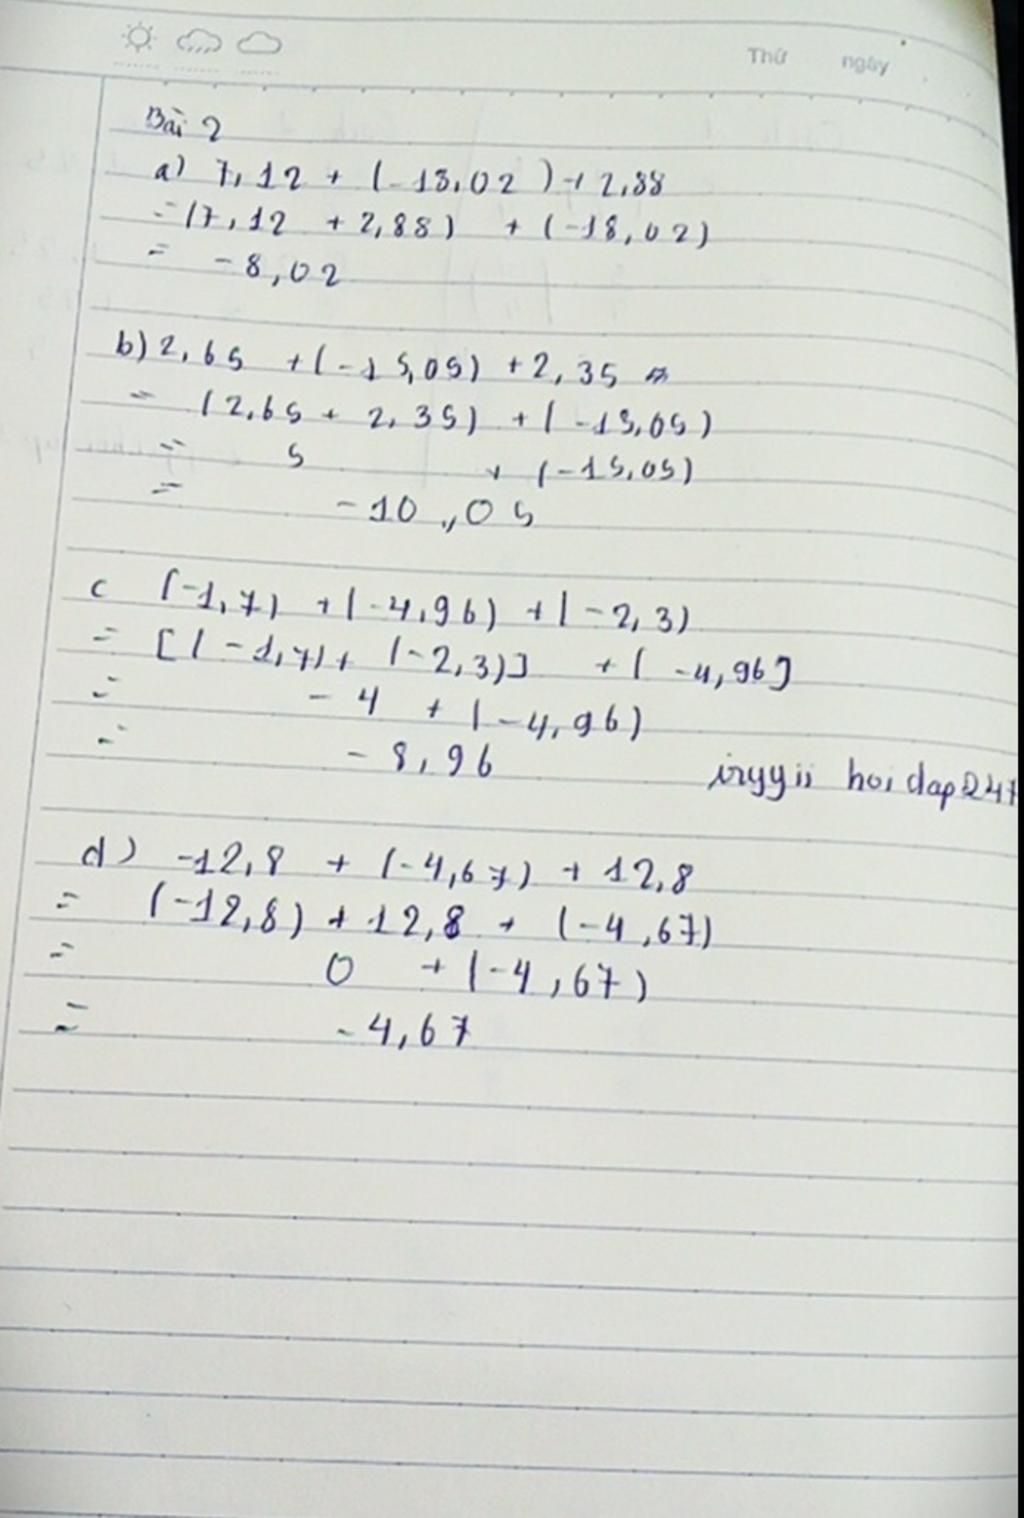 Thứ ngày
Bài 2
a) 7,12 + (-18,02) + 2,88
= (7,12 + 2,88) + (-18,02)
= -8,02
b) 2,65 + (-15,05) + 2,35
= (2,65 + 2,35) + (-15,05)
= 5 + (-15,05)
= -10,05
c (-1,7) + (-4,96) + (-2,3)
= [(-1,7) + (-2,3)] + (-4,96]
= -4 + (-4,96)
= -8,96
hoidap247
d) -12,8 + (-4,67) + 12,8
= (-12,8) + 12,8 + (-4,67)
= 0 + (-4,67)
= -4,67